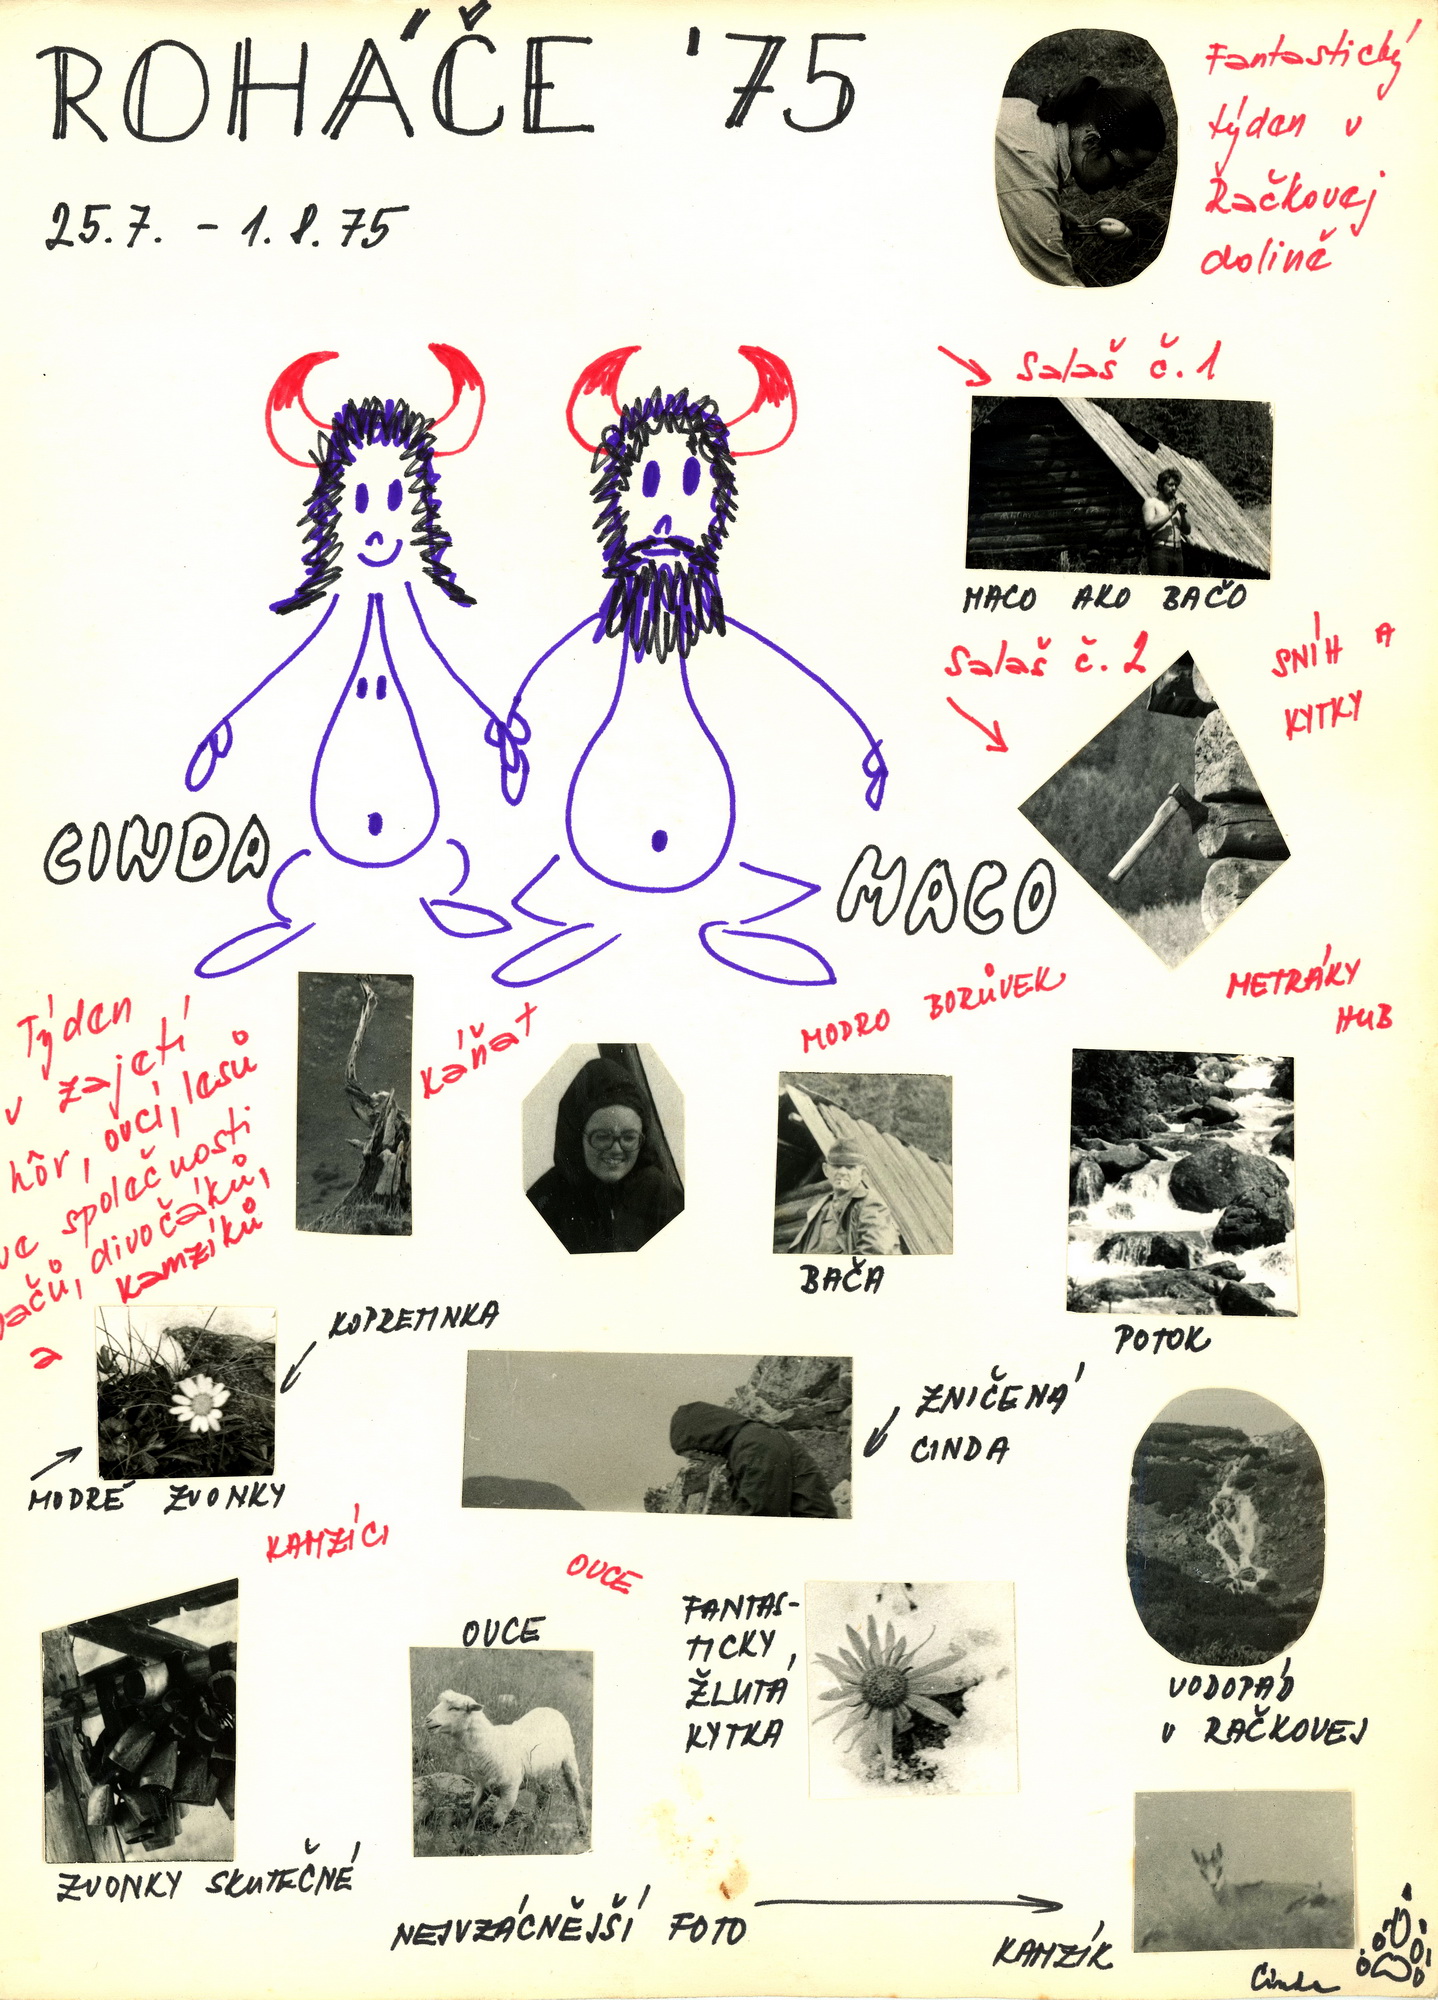 ROHÁČE '75
25.7. - 1.8.75
Fantastický
týden v
Račkovej
dolině
Salaš č.1
MACO AKO BAČO
Salaš č.2
SNÍH A
KYTKY
CINDA
MACO
MODRO BORŮVEK
METRÁKY
HUB
Týden
v zajetí
hôr, ovcí, lesů
ve společnosti
divočáků,
kamzíků
a
káňat
BAČA
POTOK
KOPRETINKA
MODRÉ ZVONKY
ZNIČENÁ
CINDA
KAMZÍCI
OVCE
OVCE
FANTAS-
TICKY
ŽLUTÁ
KYTKA
VODOPÁD
V RAČKOVEJ
ZVONKY SKUTEČNÉ
NEJVZÁCNĚJŠÍ FOTO
KAMZÍK
Cinda